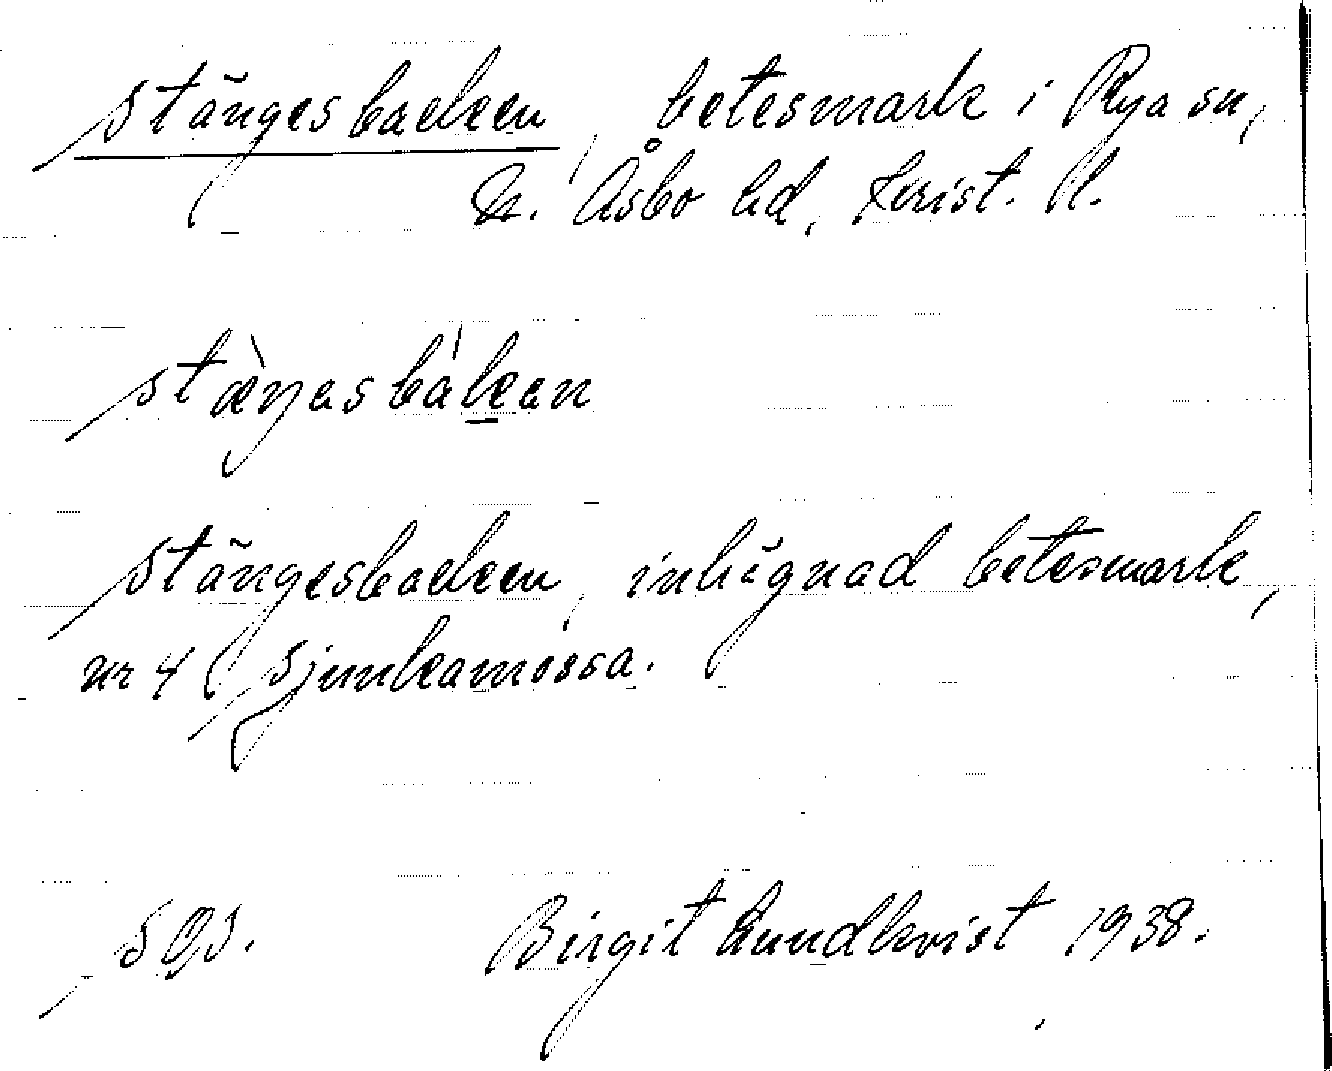 Stängesbacken, betesmark i Rya sn,
N. Åsbo hd, Krist. l.
stæ̀ŋasbák̲an
Stängesbacken, inhägnad betesmark,
nr 4 Sjunkamossa.
SOs. Birgit Lundkvist 1938.